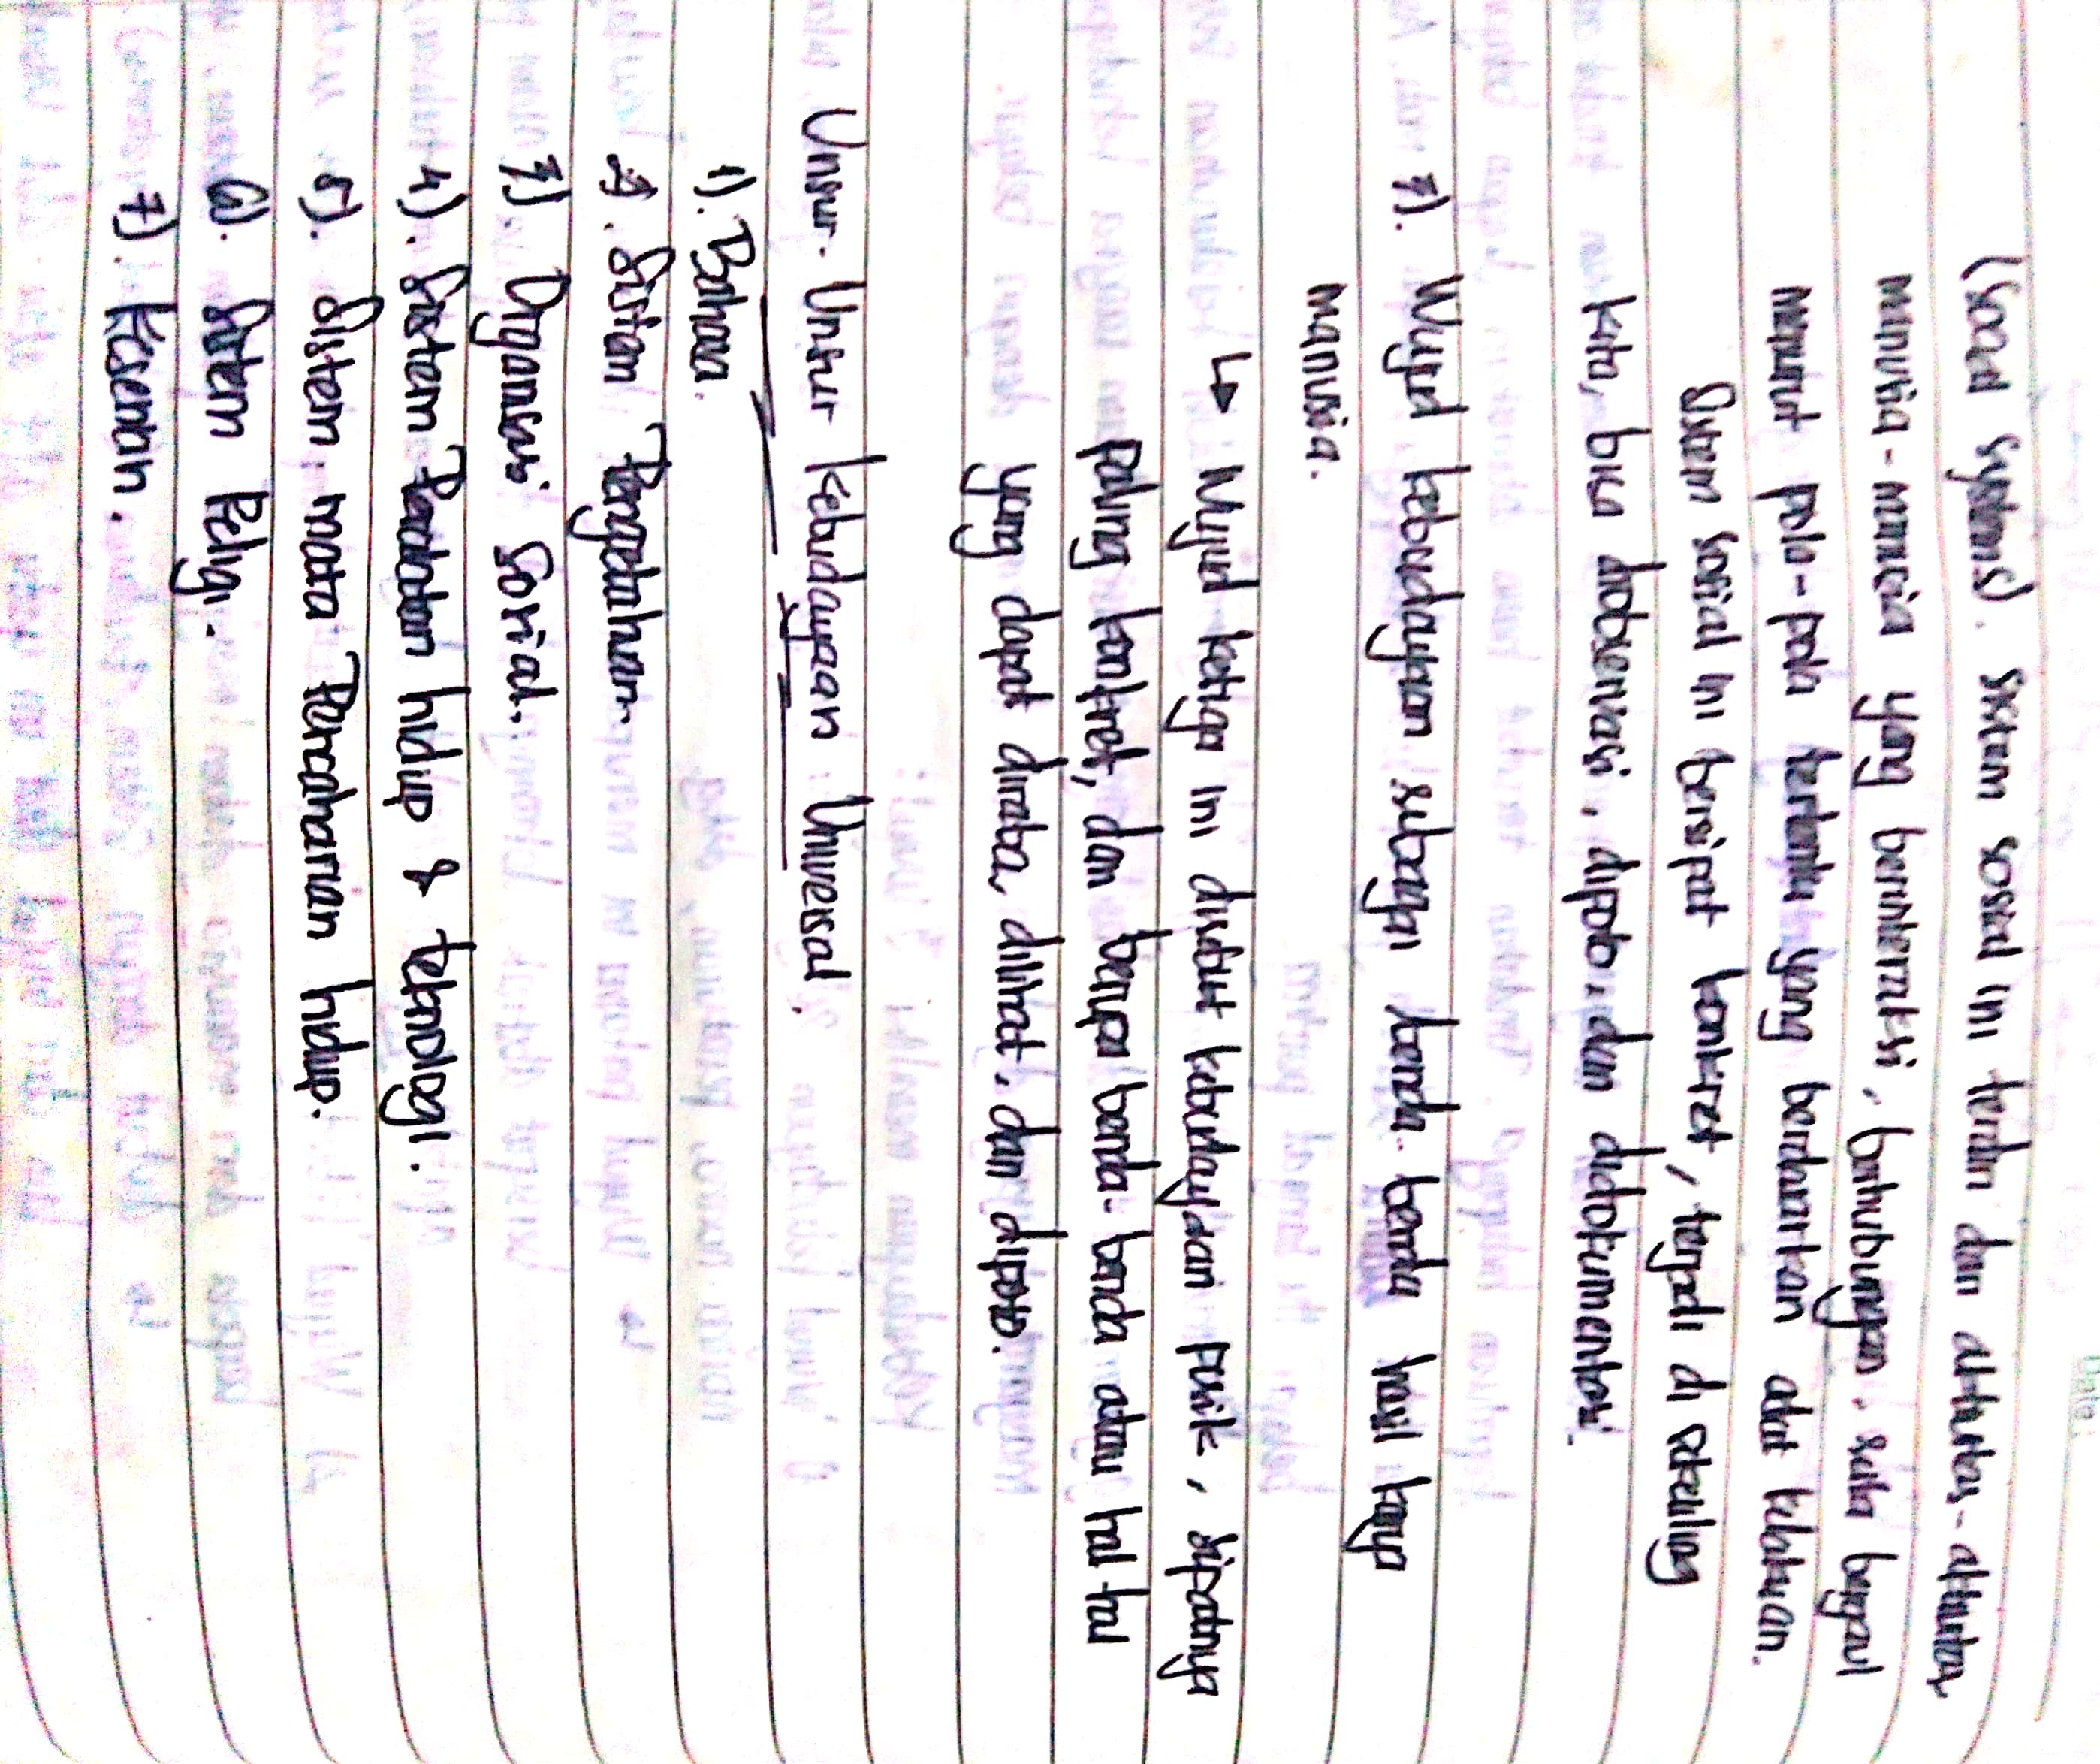 (social systems). sistem sosial ini terdiri dari aktivitas-aktivitas
manusia-manusia yang berinteraksi, berhubungan, serta bergaul
menurut pola-pola tertentu yang berdasarkan adat kelakuan.
Sistem sosial ini bersipat konkret, terjadi di sekeliling
kita, bisa diobservasi, dipoto, dan didokumentasi.
3). Wujud kebudayaan sebagai benda-benda hasil karya
manusia.
↳ Wujud ketiga ini disebut kebudayaan pisik, sipatnya
paling konkret, dan berupa benda-benda atau hal-hal
yang dapat diraba, dilihat, dan dipoto.
Unsur-Unsur kebudayaan Universal.
1). Bahasa.
2). Sistem Pengetahuan.
3). Organisasi Sosial.
4). Sistem Peralatan hidup & teknologi.
5). Sistem mata Pencaharian hidup.
6). Sistem Religi.
7). Kesenian.